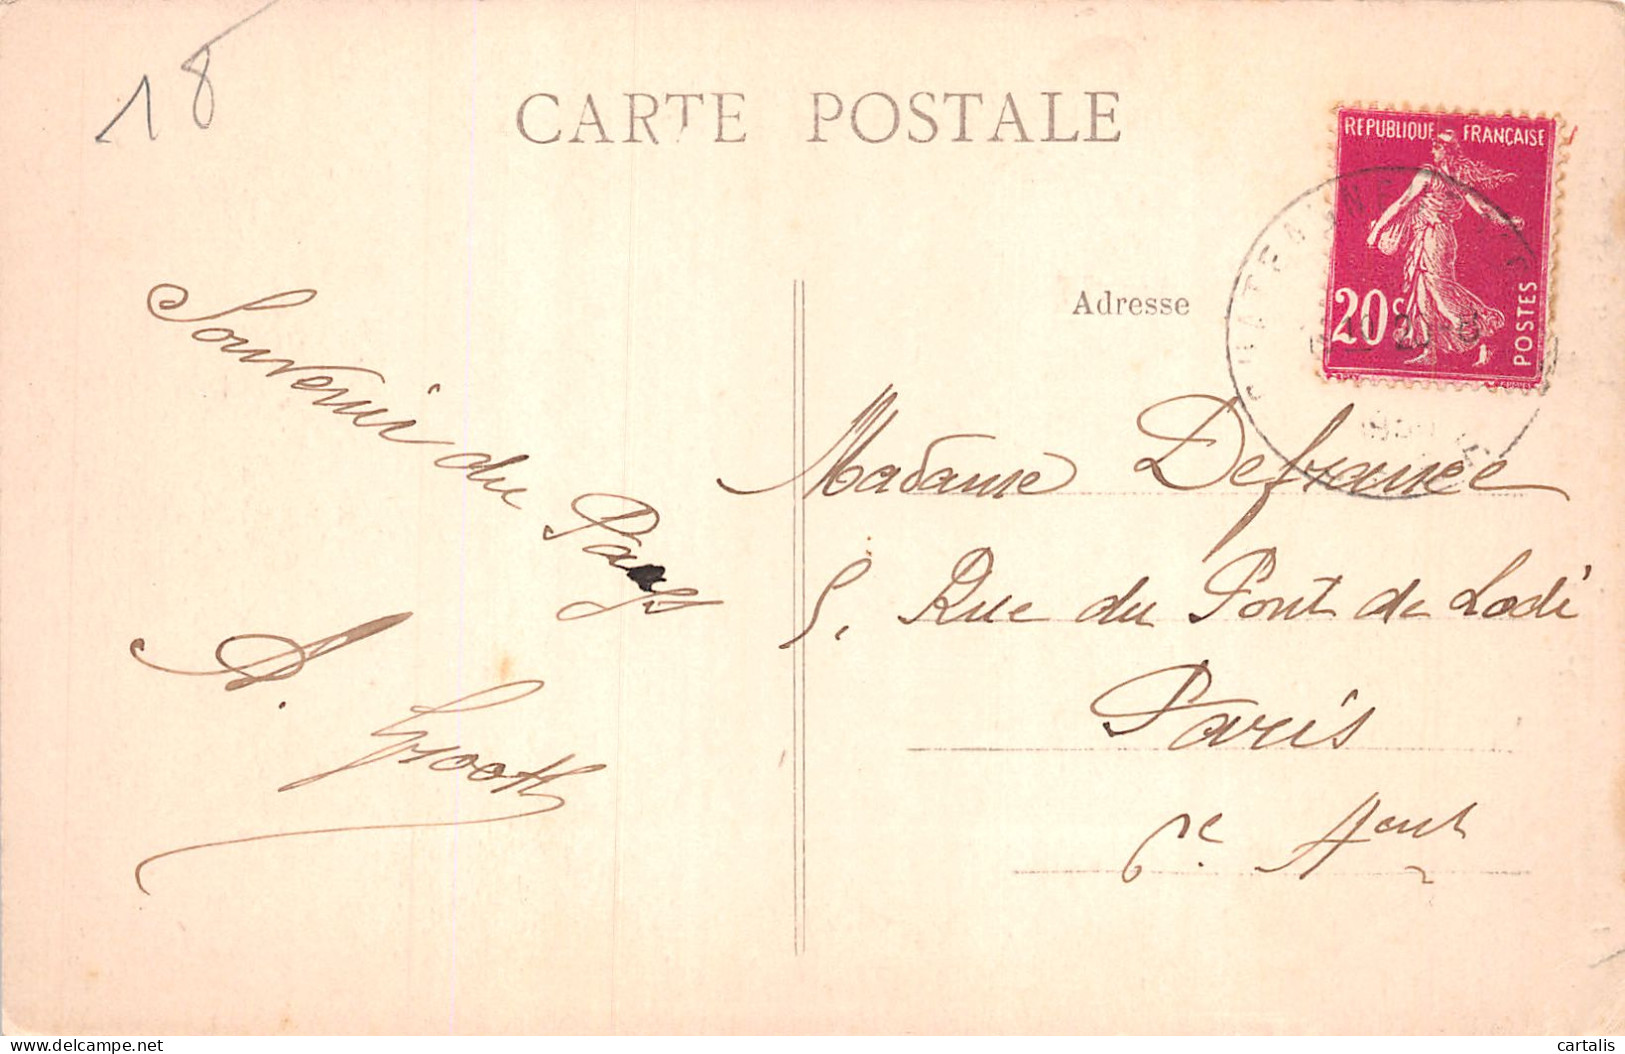 18
CARTE POSTALE
REPUBLIQUE FRANÇAISE
20c
POSTES
Adresse
Souvenir du Pays
A. Grooth
Madame Defrance
5, Rue du Pont de Lodi
Paris
6e Arrt
delcampe.net
cartalis